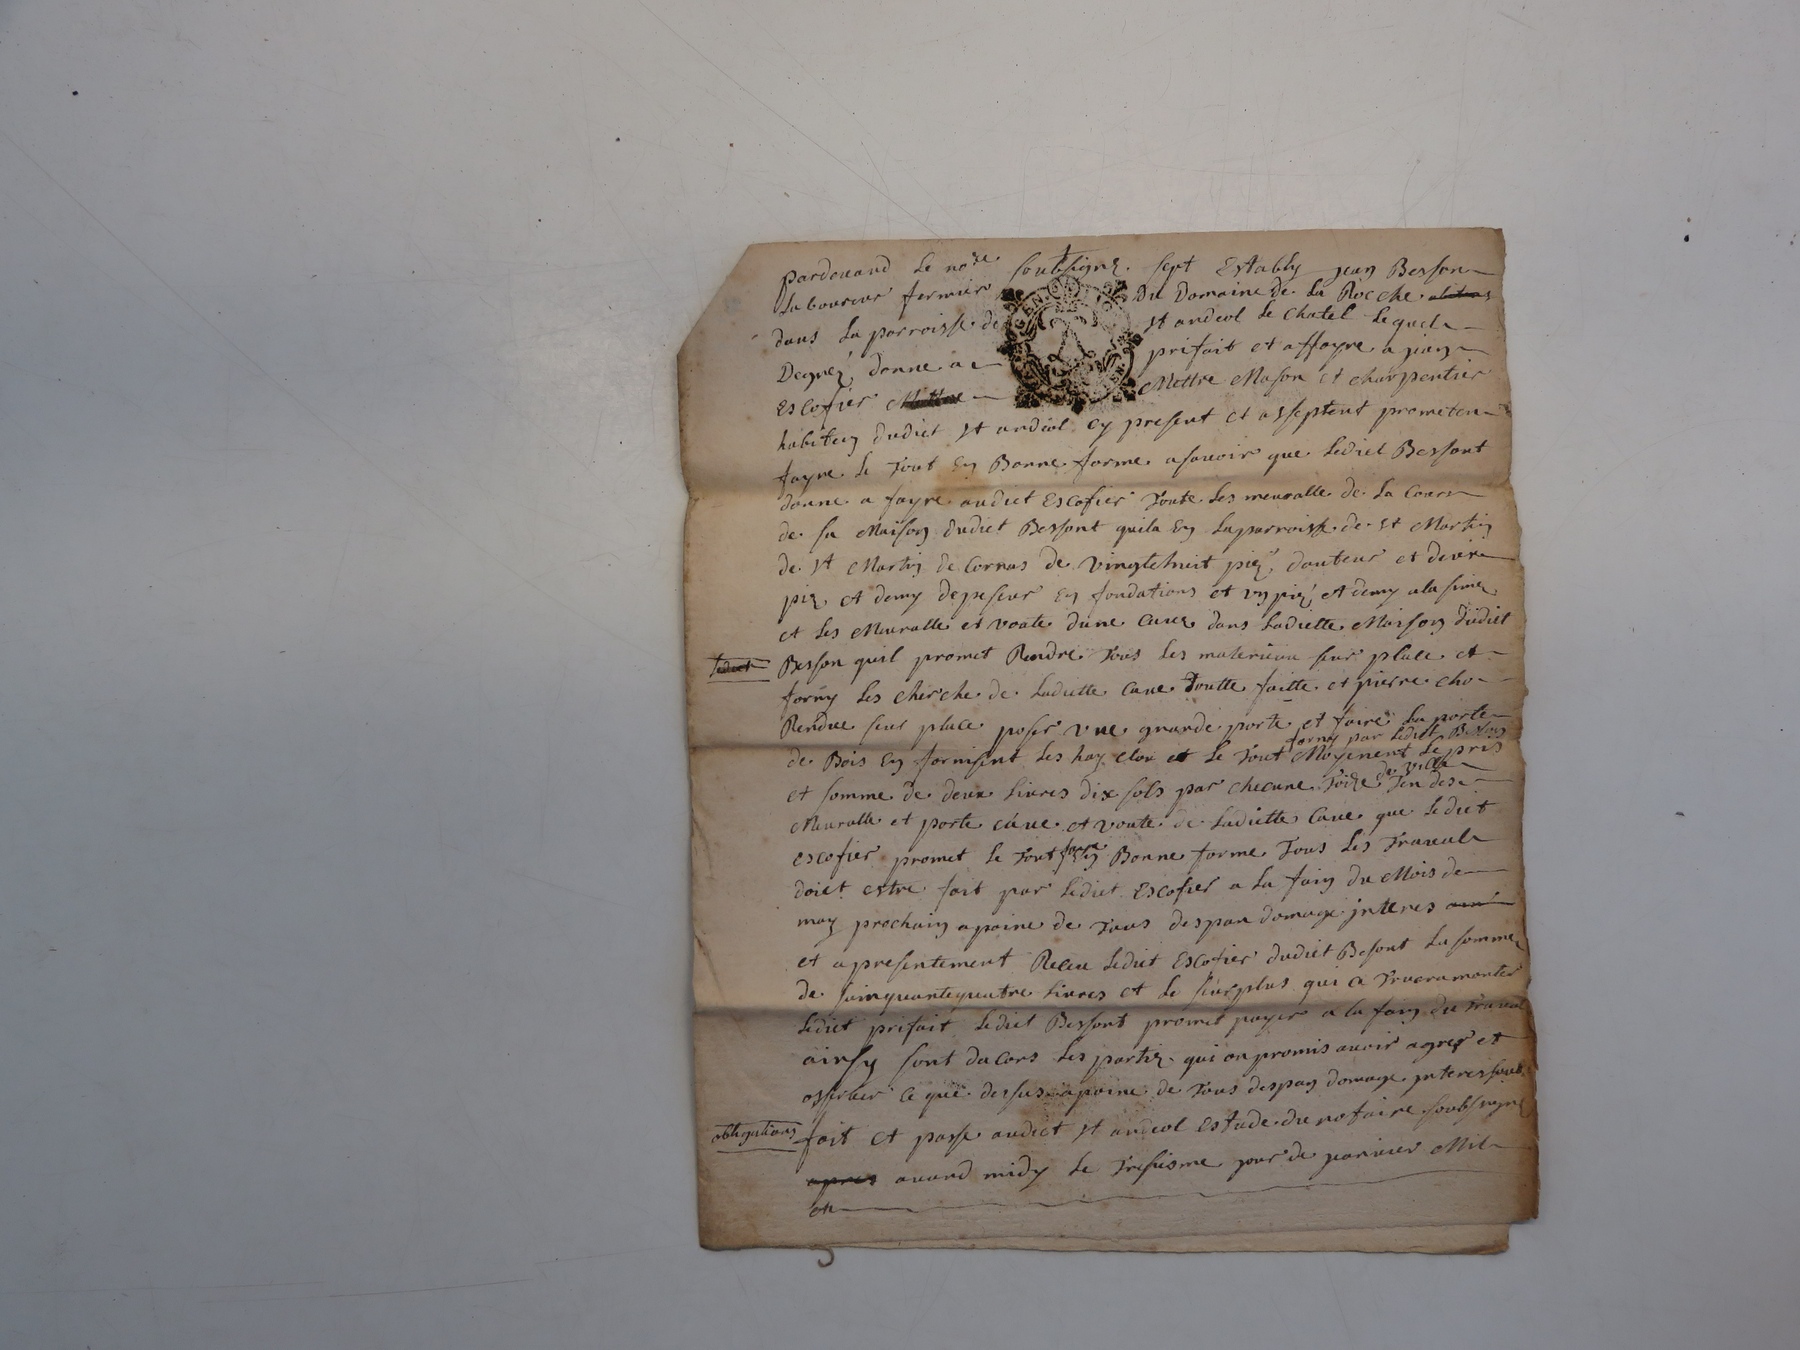 pardevand le no.re soubsigne. sest Estably jean Besson
Laboureur fermier du Domaine de La Rocche
dans La parroisse de st andeol Le Chatel Lequel
Degrez donne a prifait et affayre a jean
Escofier Mettre Mason et charpentier
habiten dudict st andeol cy present et asseptent prometen
fayre Le Tout En Bonne forme asavoir que Ledict Bessont
donne a fayre audict Escofier Toute Les meuralle de La Cour
de sa Maison dudict Bessont quila En Laparroisse de st Martin
de st Martin de Cornas de vingtehuit piez dauteur et deux
piez et demy depeseur En fondations et un piez et demy alasime
et Les Meuralle et voute dune Cave dans Ladictte Maison dudict
Ledict
Besson quil promet Rendre Tous Les materieau seur place et
forny Les cherche de Ladictte Cave Toutte faitte et pierre cho
Rendue seur place poser une grande porte et faire La porte
forny par Ledict Besson
de Bois En fornisent Les hay Clou et Le Tout Moyenent Le pris
et somme de deux Livres dix sols par checune Toize de ville Ten des
Meuralle et porte cave et voute de Ladictte Cave que Ledict
escofier promet Le Tout fere En Bonne forme Tous Les Travaul
doict estre fait par Ledict Escofier a La fain du Mois de
may prochain apaine de Tous despan domage jnteres
et apresentement Receu Ledict Escofier dudict Besont La somme
de sainquantequatre Livres et Le seurplus qui a Trueramonter
Ledict prifait Ledict Bessont promet payer a La fain du Traval
ainsy sont dacors Les partiz qui on promis avoir agrez et
osserber Ce que dessus apaine de Tous despan domage jnteres soub
obligations
fait et passe audict st andeol Estude du notaire soubsigne
apres avand midy Le Tresisme jour de janvier Mil